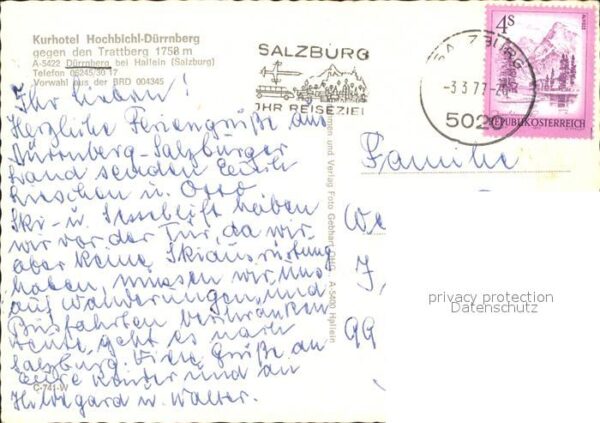 Kurhotel Hochbichl-Dürrnberg
gegen den Trattberg 1758 m
A-5422 Dürrnberg bei Hallein (Salzburg)
Telefon 06245/30 17
Vorwahl aus der BRD 004345
SALZBURG
IHR REISEZIEL
SALZBURG
-3.3.77-20
5020
4S
REPUBLIK ÖSTERREICH
Ihr Lieben!
Herzliche Feriengrüße aus
Dürrnberg-Salzburger
Land senden Euch
Lieschen u. Otto
Ski- u. Sessellift haben
wir vor der Tür, da wir
aber keine Skiausrüstung
haben, müssen wir uns
auf Wanderungen und
Busfahrten beschränken
Heute geht es nach
Salzburg. Viele Grüße an
Eure Kinder und an
Hildegard u. Walter.
C-741-W
und Verlag Foto Gebhart OHG., A-5400 Hallein
Familie
We
J,
99
privacy protection
Datenschutz